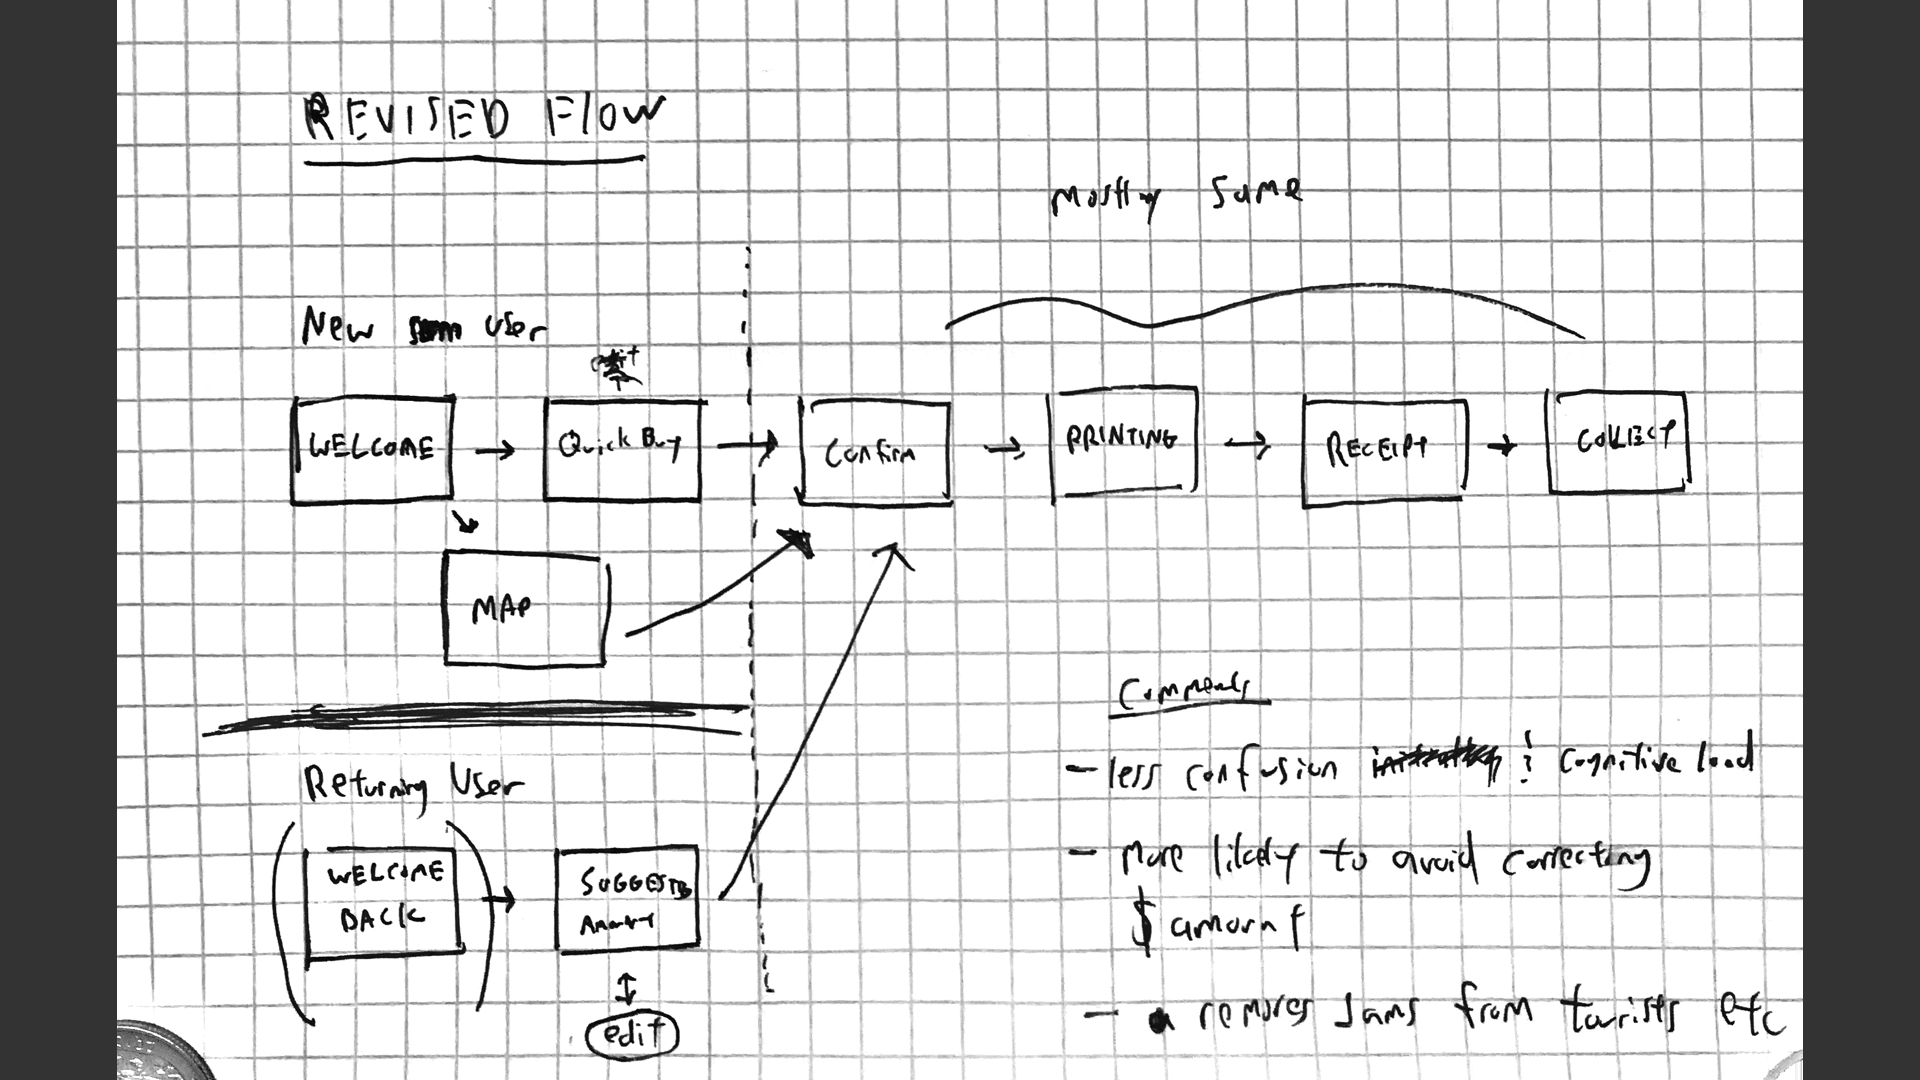 REVISED FLOW
mostly same
New user
WELCOME
Quick Buy
Confirm
PRINTING
RECEIPT
COLLECT
MAP
Returning User
WELCOME
BACK
SUGGESTED
Amount
edit
Comments
- less confusion & cognitive load
- more likely to avoid correcting
$ amount
- removes jams from tourists etc